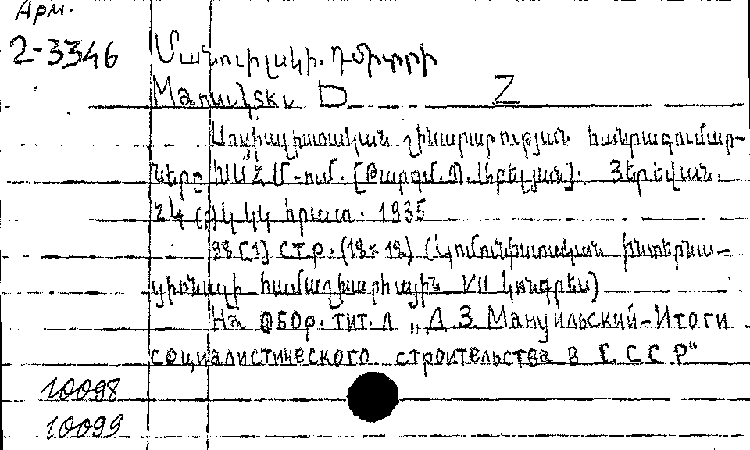 Арм.
2-3346 Մանուիլսկի. Դմիտրի
Manuilski D. Z
Սոցիալիստական շինարարության հանրագումար-
ները ԽՍՀՄ-ում. [Թարգմ. Յերեվան.
ՀԿ(բ)Կ ԿԿ հրատ. 1935
98 [1] стр. (18х12) (Կոմունիստական ինտերնա-
ցիոնալի համաշխարհային VII կոնգրես)
На обор. тит. л „Д З Мануильский-Итоги
социалистического строительства в СССР"
10098
10099